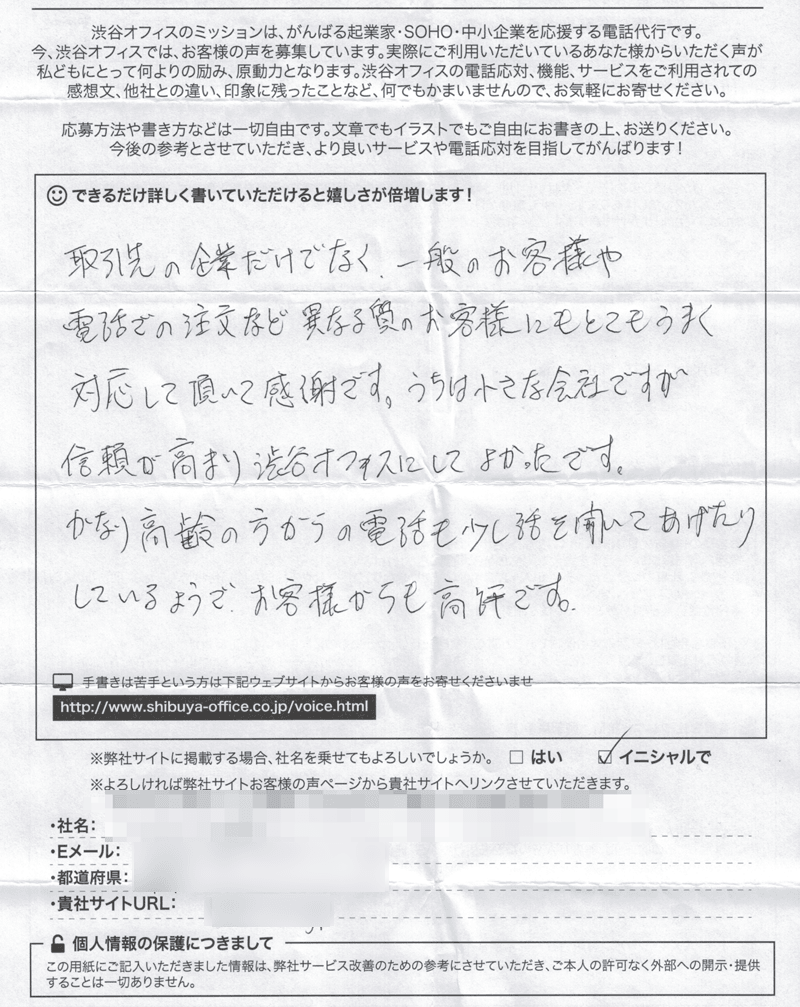 渋谷オフィスのミッションは、がんばる起業家・SOHO・中小企業を応援する電話代行です。
今、渋谷オフィスでは、お客様の声を募集しています。実際にご利用いただいているあなた様からいただく声が
私どもにとって何よりの励み、原動力となります。渋谷オフィスの電話応対、機能、サービスをご利用されての
感想文、他社との違い、印象に残ったことなど、何でもかまいませんので、お気軽にお寄せください。
応募方法や書き方などは一切自由です。文章でもイラストでもご自由にお書きの上、お送りください。
今後の参考とさせていただき、より良いサービスや電話応対を目指してがんばります！
できるだけ詳しく書いていただけると嬉しさが倍増します！
取引先の企業だけでなく、一般のお客様や
電話での注文など異なる質のお客様にもとてもうまく
対応して頂いて感謝です。うちは小さな会社ですが
信頼が高まり渋谷オフィスにしてよかったです。
かなり高齢の方からの電話も少し話を聞いてあげたり
しているようで、お客様からも高評です。
手書きは苦手という方は下記ウェブサイトからお客様の声をお寄せくださいませ
http://www.shibuya-office.co.jp/voice.html
※弊社サイトに掲載する場合、社名を乗せてもよろしいでしょうか。 □ はい ☑ イニシャルで
※よろしければ弊社サイトお客様の声ページから貴社サイトへリンクさせていただきます。
・社名：
・Eメール：
・都道府県：
・貴社サイトURL：
個人情報の保護につきまして
この用紙にご記入いただきました情報は、弊社サービス改善のための参考にさせていただき、ご本人の許可なく外部への開示・提供
することは一切ありません。